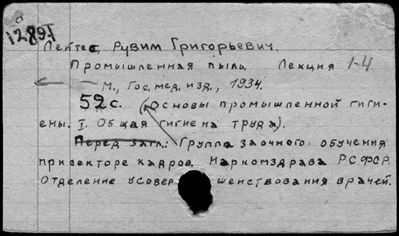 1289I
Лейтес, Рувим Григорьевич.
Промышленная пыль. Лекция 1-4
М., Гос. мед. изд., 1934.
52 с. (Основы промышленной гиги-
ены. I. Общая гигиена труда).
Перед загл.: Группа заочного обучения
при секторе кадров. Наркомздрава РСФСР.
Отделение усовершенствования врачей.